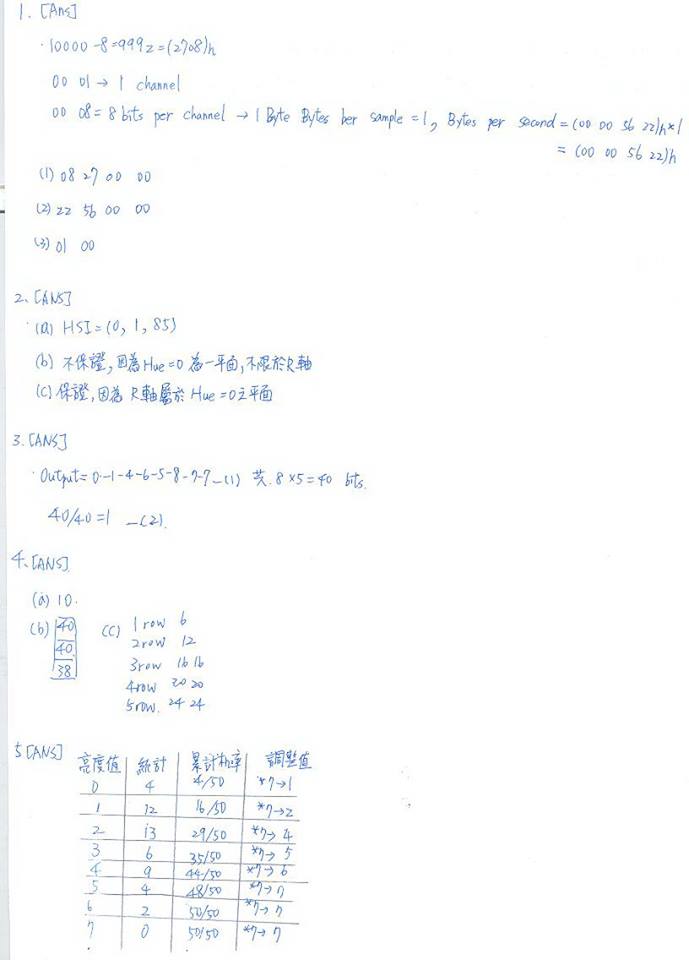 1. [Ans]
10000-8=9992=(2708)h
00 01→ 1 channel
00 08= 8 bits per channel → 1 Byte Bytes per sample =1, Bytes per second = (00 00 56 22)h*1
= (00 00 56 22)h
(1) 08 27 00 00
(2) 22 56 00 00
(3) 01 00
2. [ANS]
(a) HSI=(0, 1, 85)
(b) 不保證,因為Hue=0 為一平面,不限於R軸
(c) 保證,因為 R軸屬於 Hue=0之平面
3. [ANS]
Output= 0-1-4-6-5-8-7-7 —(1) 共 8×5=40 bits.
40/40=1 —(2).
4. [ANS]
(a) 10.
(b) 40 40 38
(c) 1row 6
2row 12
3row 16 16
4row 20 20
5row. 24 24
5 [ANS]
亮度值 統計 累計機率 調整值
0 4 4/50 *7→1
1 12 16/50 *7→2
2 13 29/50 *7→ 4
3 6 35/50 *7→ 5
4 9 44/50 *7→ 6
5 4 48/50 *7→ 7
6 2 50/50 *7→ 7
7 0 50/50 *7→ 7